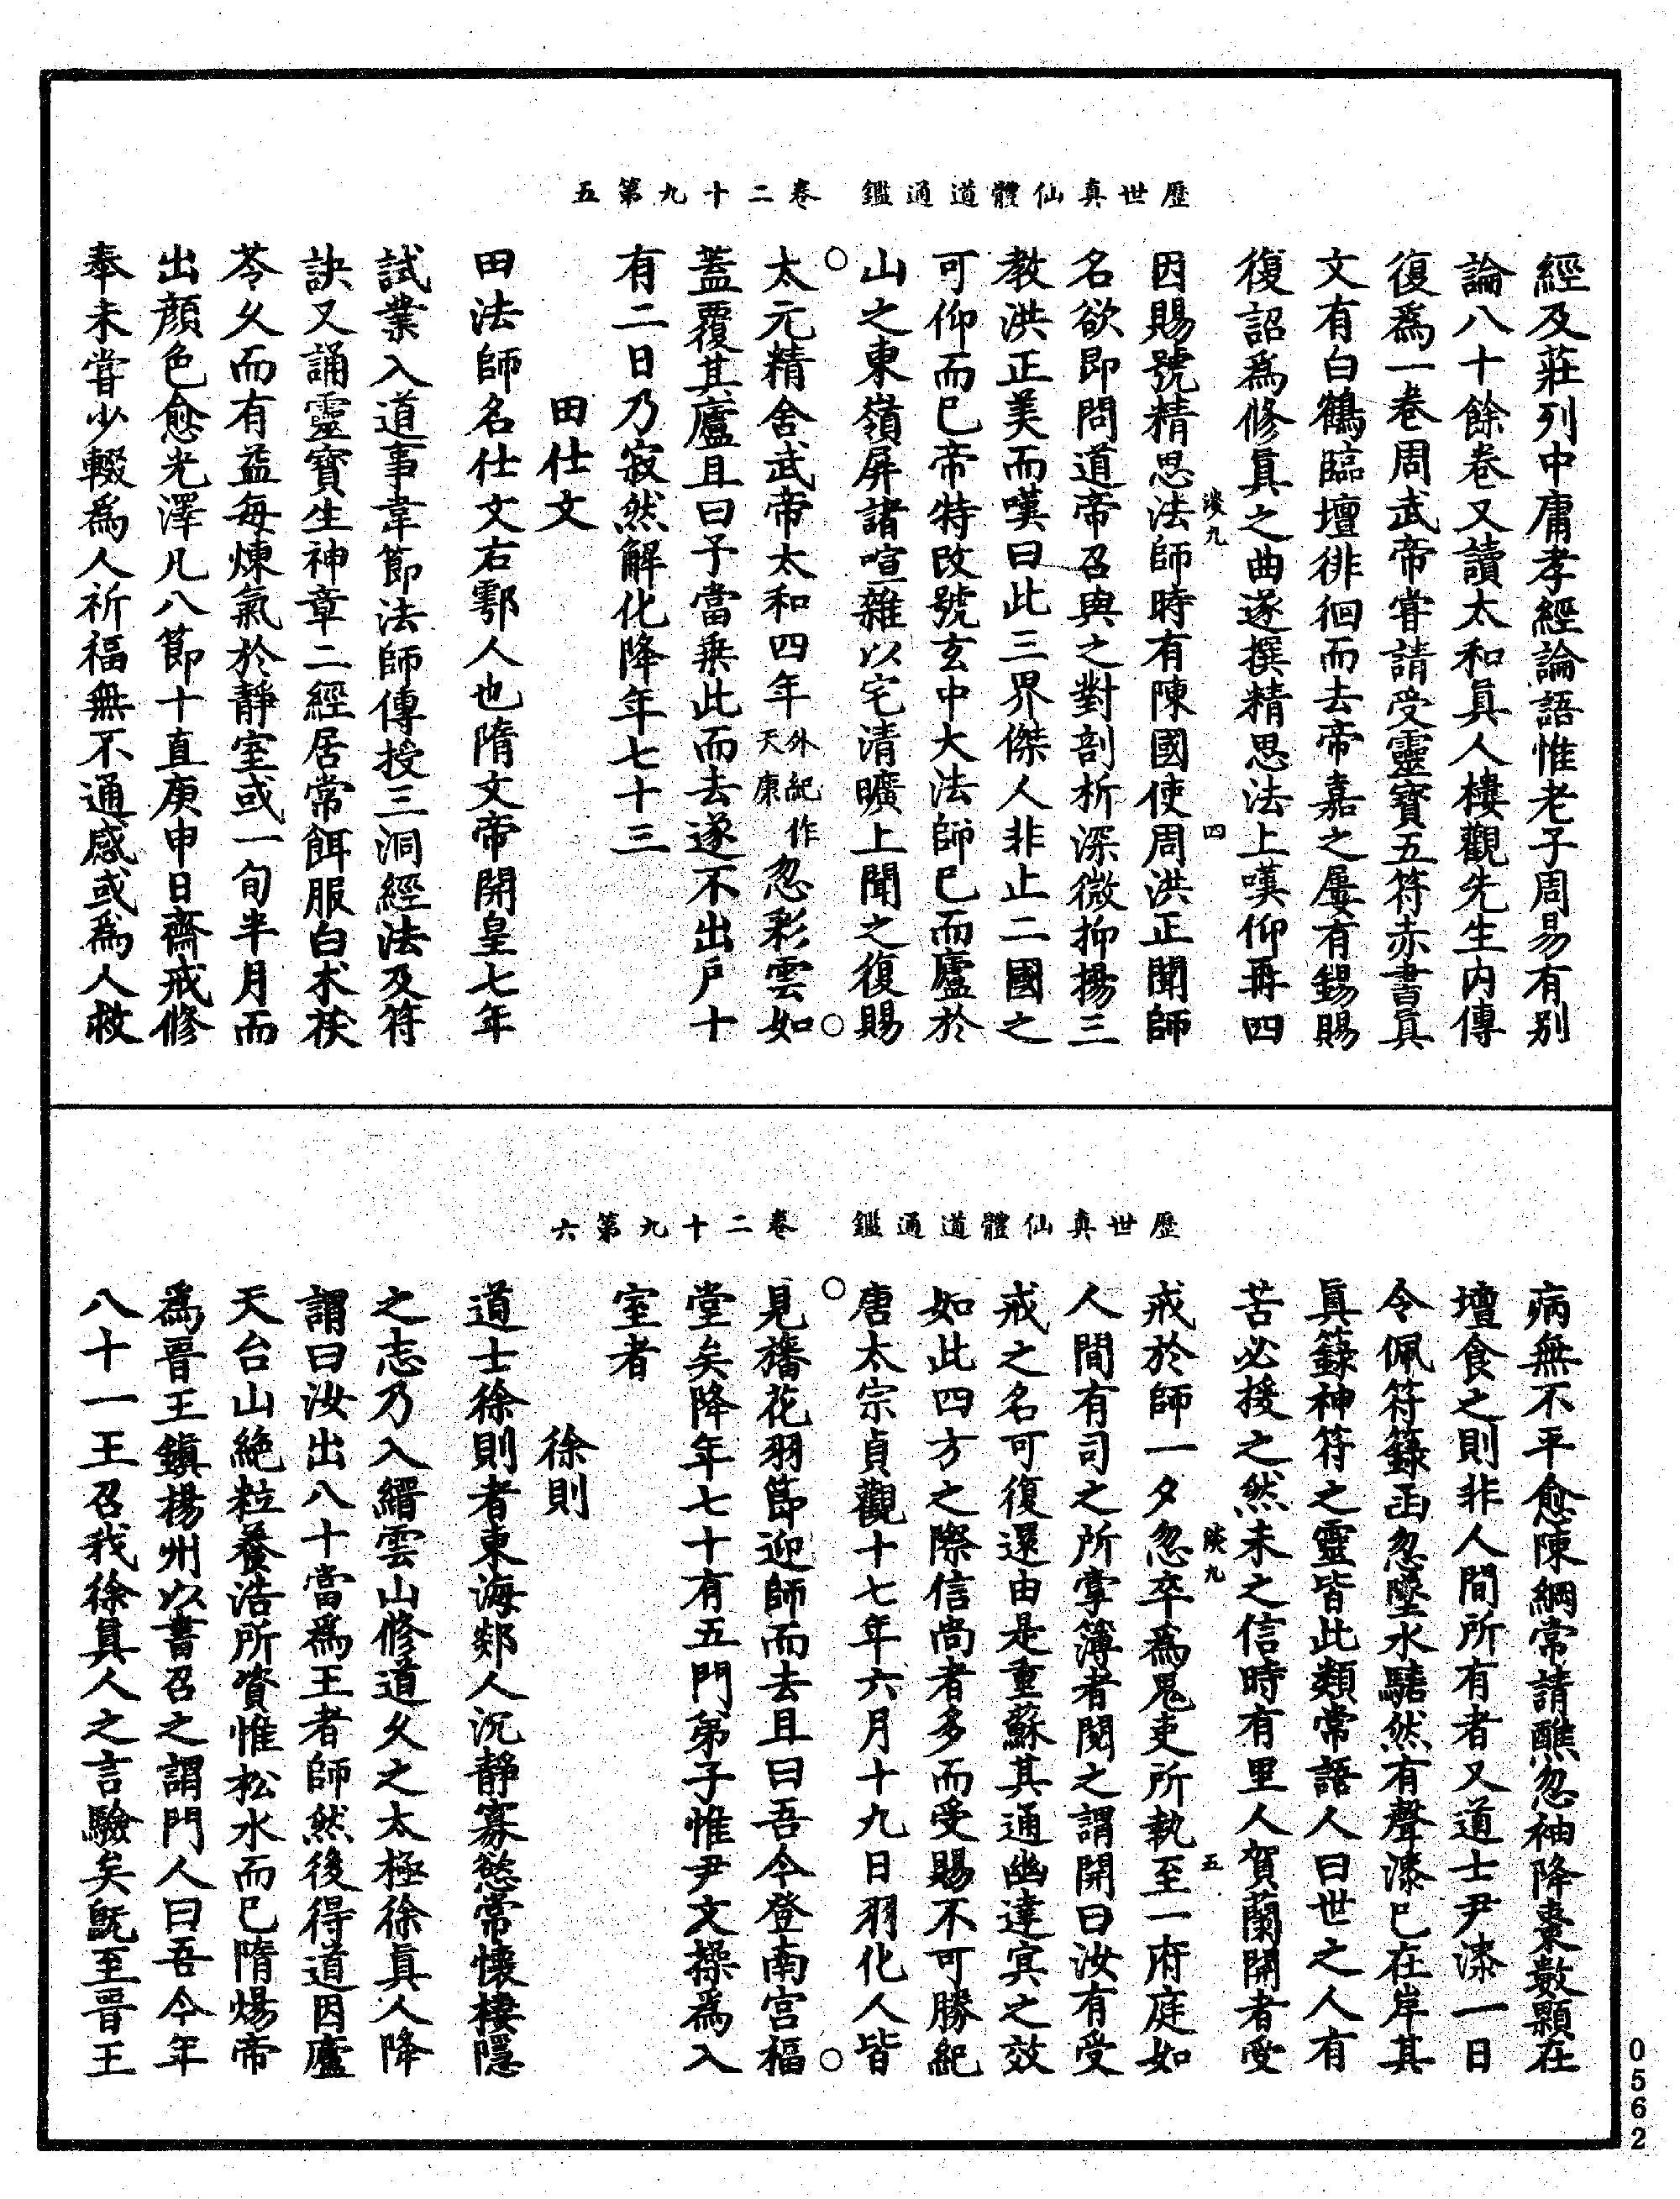 歷世真仙體道通鑑　卷二十九第五
經及莊列中庸孝經論語惟老子周易有別
論八十餘卷又讀太和真人樓觀先生內傳
復爲一卷周武帝甞請受靈寶五符赤書真
文有白鶴臨壇徘徊而去帝嘉之屢有錫賜
復詔爲修真之曲遂撰精思法上嘆仰再四
淡九　四
因賜號精思法師時有陳國使周洪正聞師
名欲即問道帝召與之對剖析深微抑揚三
教洪正美而嘆曰此三界傑人非止二國之
可仰而已帝特改號玄中大法師已而廬於
山之東嶺屏諸喧雜以宅清曠上聞之復賜
太元精舍武帝太和四年外紀作天康忽彩雲如
蓋覆其廬且曰予當乘此而去遂不出戶十
有二日乃寂然解化降年七十三
田仕文
田法師名仕文右鄠人也隋文帝開皇七年
試業入道事韋節法師傳授三洞經法及符
訣又誦靈寶生神章二經居常餌服白术茯
苓久而有益每煉氣於靜室或一旬半月而
出顏色愈光澤凡八節十直庚申日齋戒修
奉未甞少輟爲人祈福無不通感或爲人救
歷世真仙體道通鑑　卷二十九第六
病無不平愈陳綱常請醮忽袖降棗數顆在
壇食之則非人間所有者又道士尹漆一日
令佩符籙函忽墜水騞然有聲漆已在岸其
真籙神符之靈皆此類常語人曰世之人有
苦必援之然未之信時有里人賀蘭開者受
淡九　五
戒於師一夕忽卒爲鬼吏所執至一府庭如
人間有司之所掌簿者閱之謂開曰汝有受
戒之名可復還由是重蘇其通幽達冥之效
如此四方之際信尚者多而受賜不可勝紀
唐太宗貞觀十七年六月十九日羽化人皆
見旛花羽節迎師而去且曰吾今登南宮福
堂矣降年七十有五門弟子惟尹文操爲入
室者
徐則
道士徐則者東海郯人沉靜寡慾常懷棲隱
之志乃入縉雲山修道久之太極徐真人降
謂曰汝出八十當爲王者師然後得道因廬
天台山絕粒養浩所資惟松水而已隋煬帝
爲晉王鎮楊州以書召之謂門人曰吾今年
八十一王召我徐真人之言驗矣旣至晉王
0562